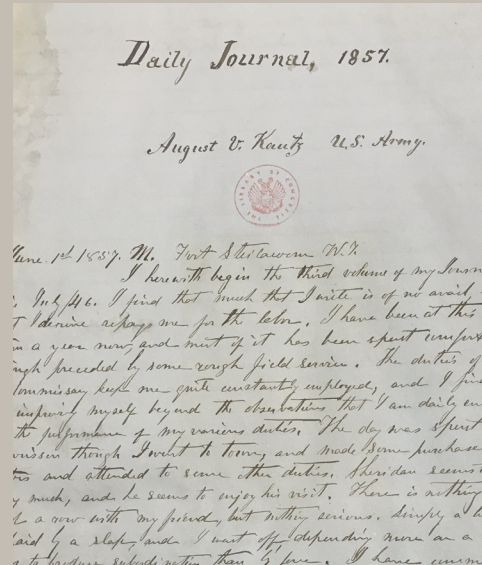 Daily Journal, 1857.
August V. Kautz U.S. Army.
THE LIBRARY OF CONGRESS
June 1st 1857. M. Fort Steilacoom W.T.
I herewith begin the third volume of my Journ
I find that much that I write is of no avail,
I derive repays me for the labor. I have been at this
in a year now, and most of it has been spent comfort
ugh preceded by some rough field service. The duties of
Commissary keep me quite constantly employed, and I fin
improving myself beyond the observations that I am daily en
the performance of my various duties. The day was spent
though I went to town, and made some purchase
and attended to some other duties. Sheridan seems
y much, and he seems to enjoy his visit. There is nothing
of a row with my friend, but nothing serious. Simply a
by a slap, and I went off depending more on a
to produce subordination than by love. I have